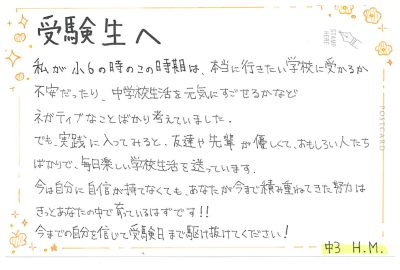 受験生へ
STAMP HERE
私が小6の時のこの時期は、本当に行きたい学校に受かるか
不安だったり、中学校生活を元気にすごせるかなど
ネガティブなことばかり考えていました。
でも、実践に入ってみると、友達や先輩が優しくて、おもしろい人たち
ばかりで、毎日楽しい学校生活を送っています。
今は自分に自信が持てなくても、あなたが今まで積み重ねてきた努力は
きっとあなたの中で育っているはずです!!
今までの自分を信じて受験日まで駆け抜けてください!
POSTCARD
中3 H.M.